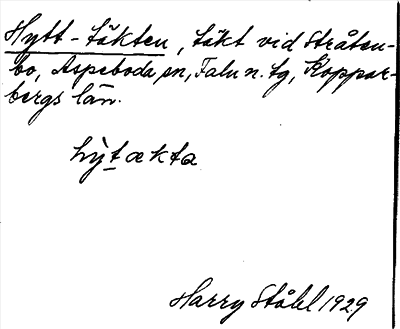 Hytt-täkten, täkt vid Stråten-
bo, Aspeboda sn, Falu n. tg, Koppar-
bergs län.
hỳtækta
Harry Ståhl 1929